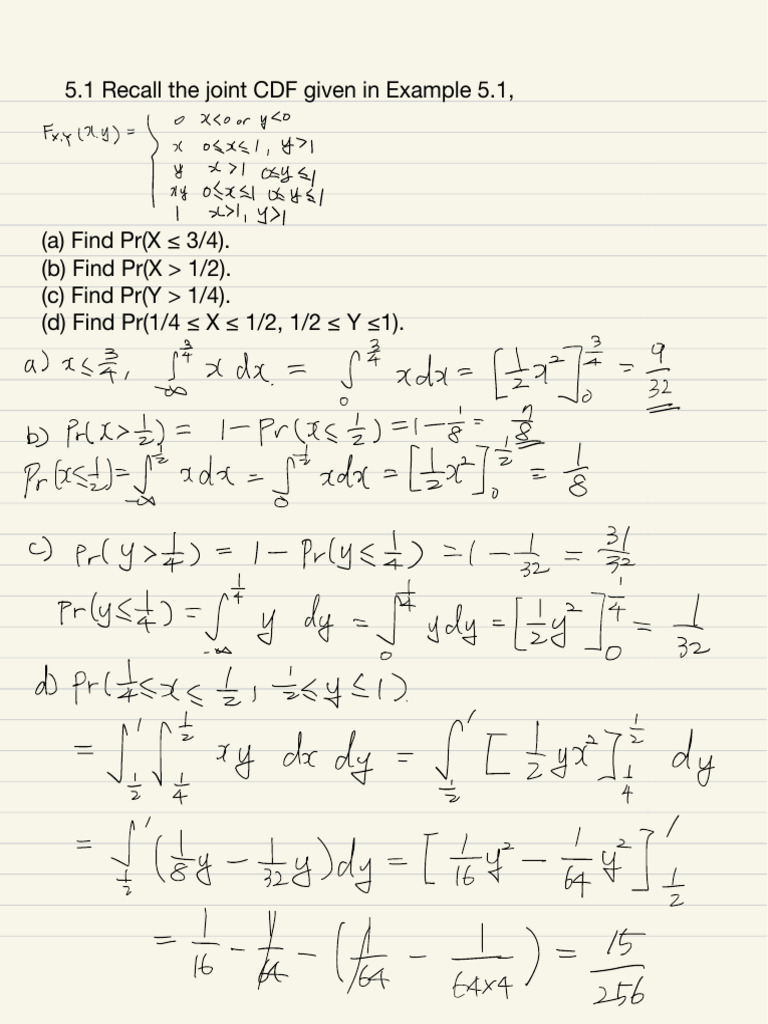 5.1 Recall the joint CDF given in Example 5.1,
F_{X,Y}(x,y) = {
0 x<0 or y<0
x 0≤x≤1, y>1
y x>1 0≤y≤1
xy 0≤x≤1 0≤y≤1
1 x>1, y>1
(a) Find Pr(X ≤ 3/4).
(b) Find Pr(X > 1/2).
(c) Find Pr(Y > 1/4).
(d) Find Pr(1/4 ≤ X ≤ 1/2, 1/2 ≤ Y ≤1).
a) x ≤ 3/4, ∫_{-∞}^{3/4} x dx. = ∫_0^{3/4} x dx = [1/2 x²]_0^{3/4} = 9/32
b) Pr(x>1/2) = 1-Pr(x≤1/2) = 1-1/8 = 7/8
Pr(x≤1/2) = ∫_{-∞}^{1/2} x dx = ∫_0^{1/2} x dx = [1/2 x²]_0^{1/2} = 1/8
c) Pr(y>1/4) = 1-Pr(y≤1/4) = 1-1/32 = 31/32
Pr(y≤1/4) = ∫_{-∞}^{1/4} y dy = ∫_0^{1/4} y dy = [1/2 y²]_0^{1/4} = 1/32
d) Pr(1/4≤x≤1/2, 1/2≤y≤1).
= ∫_{1/2}^1 ∫_{1/4}^{1/2} xy dx dy = ∫_{1/2}^1 [1/2 yx²]_{1/4}^{1/2} dy
= ∫_{1/2}^1 (1/8 y - 1/32 y) dy = [1/16 y² - 1/64 y²]_{1/2}^1
= 1/16 - 1/64 - (1/64 - 1/(64×4)) = 15/256